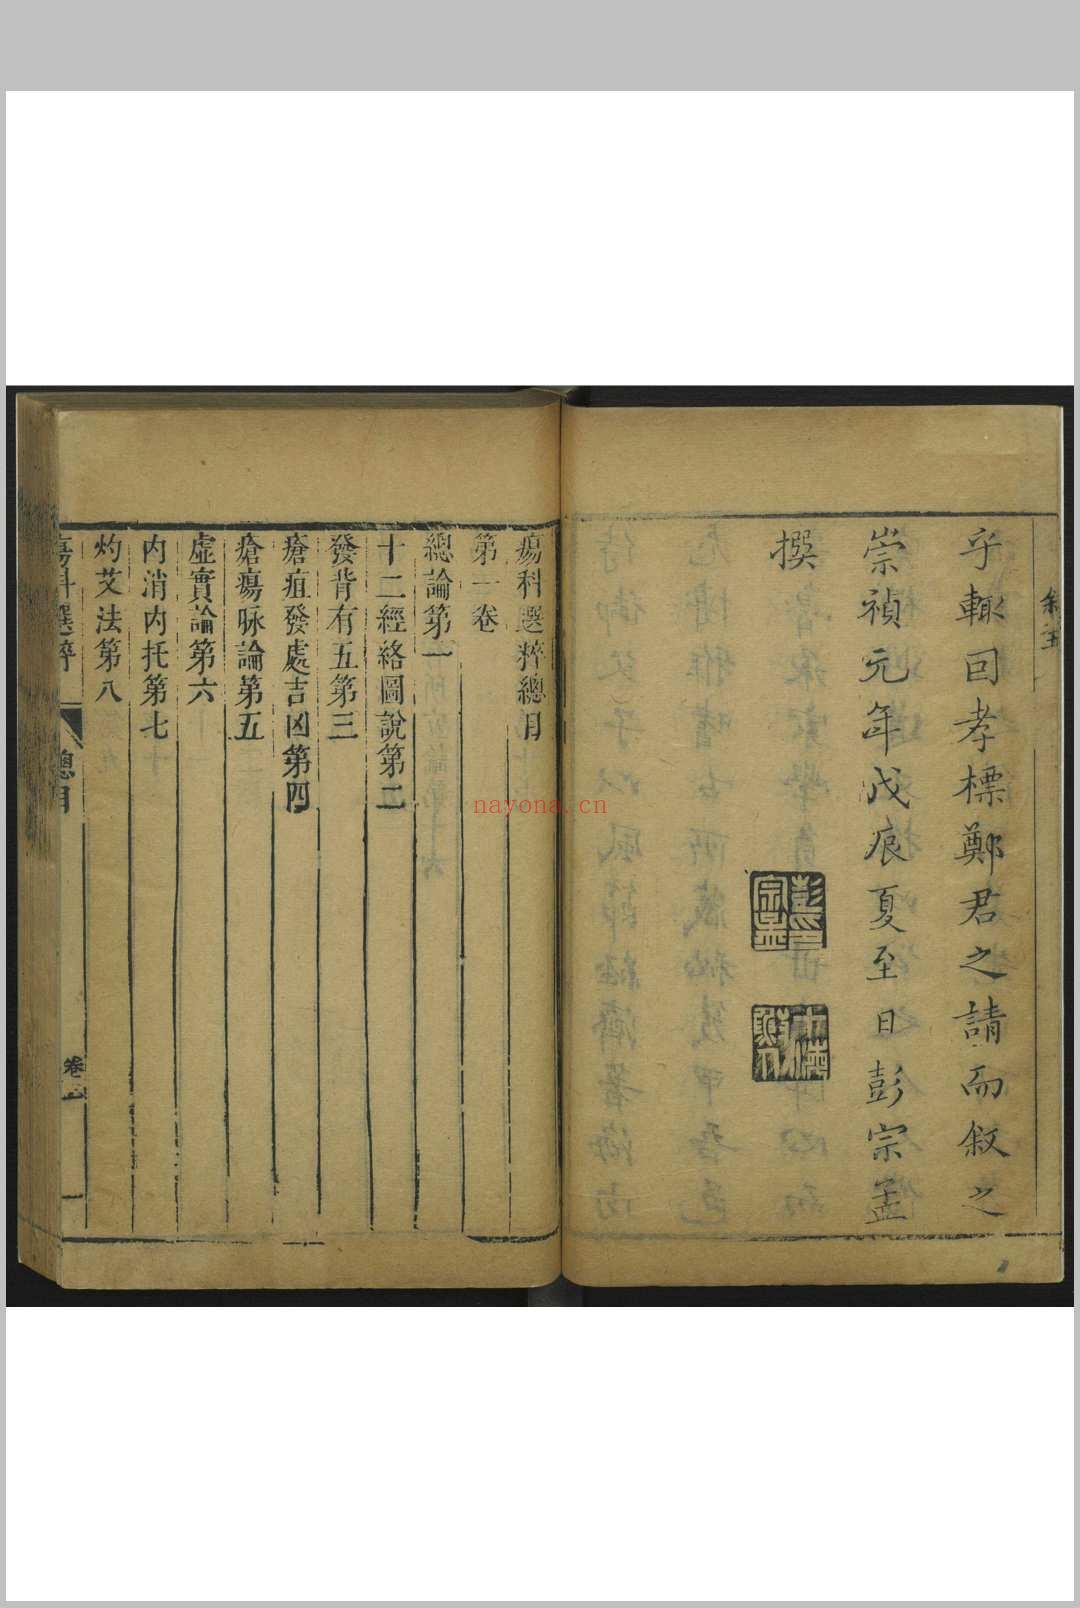 乎輙囙孝標鄭君之請而敘之
崇禎元年戊辰夏至日彭宗孟
撰
瘍科選粹總目
第一卷
總論第一
十二經絡圖說第二
發背有五第三
瘡疽發處吉凶第四
瘡瘍脉論第五
虛實論第六
内消内托第七
灼艾法第八
瘍科選粹
總目
卷
一
彭印宗孟
nayona.cn